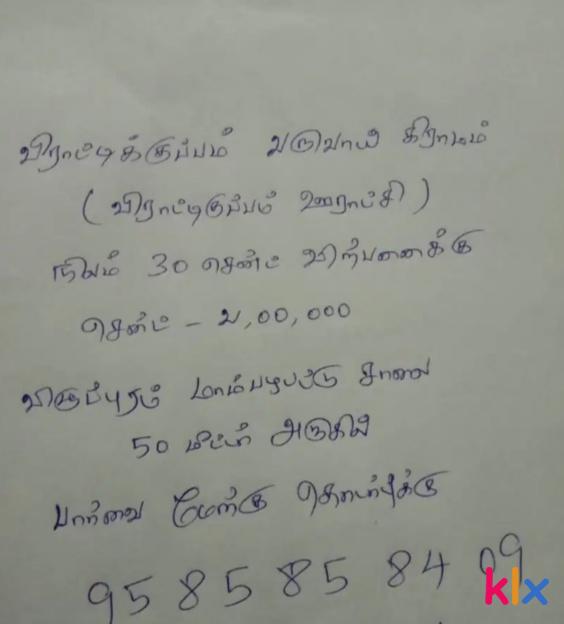 விராட்டிக்குப்பம் வருவாய் கிராமம்
( விராட்டிகுப்பம் ஊராட்சி )
நிலம் 30 சென்ட் விற்பனைக்கு
சென்ட் - 2,00,000
விழுப்புரம் மாம்பழபட்டு சாலை
50 மீட்டர் அருகில்
பார்வை தொடர்புக்கு
95 85 85 84 09
klx